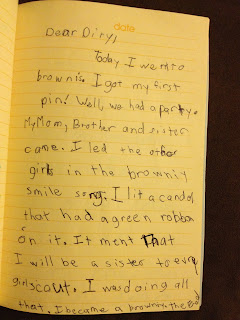 date
Dear Diry,
Today I went to
brownis. I got my first
pin! Well, we had a party.
My Mom, Brother and sister
came. I led the other
girls in the browniy
smile song. I lit a candol
that had a green robbon
on it. It ment that
I will be a sister to every
girlscout. I was doing all
that. I became a brownie. the End